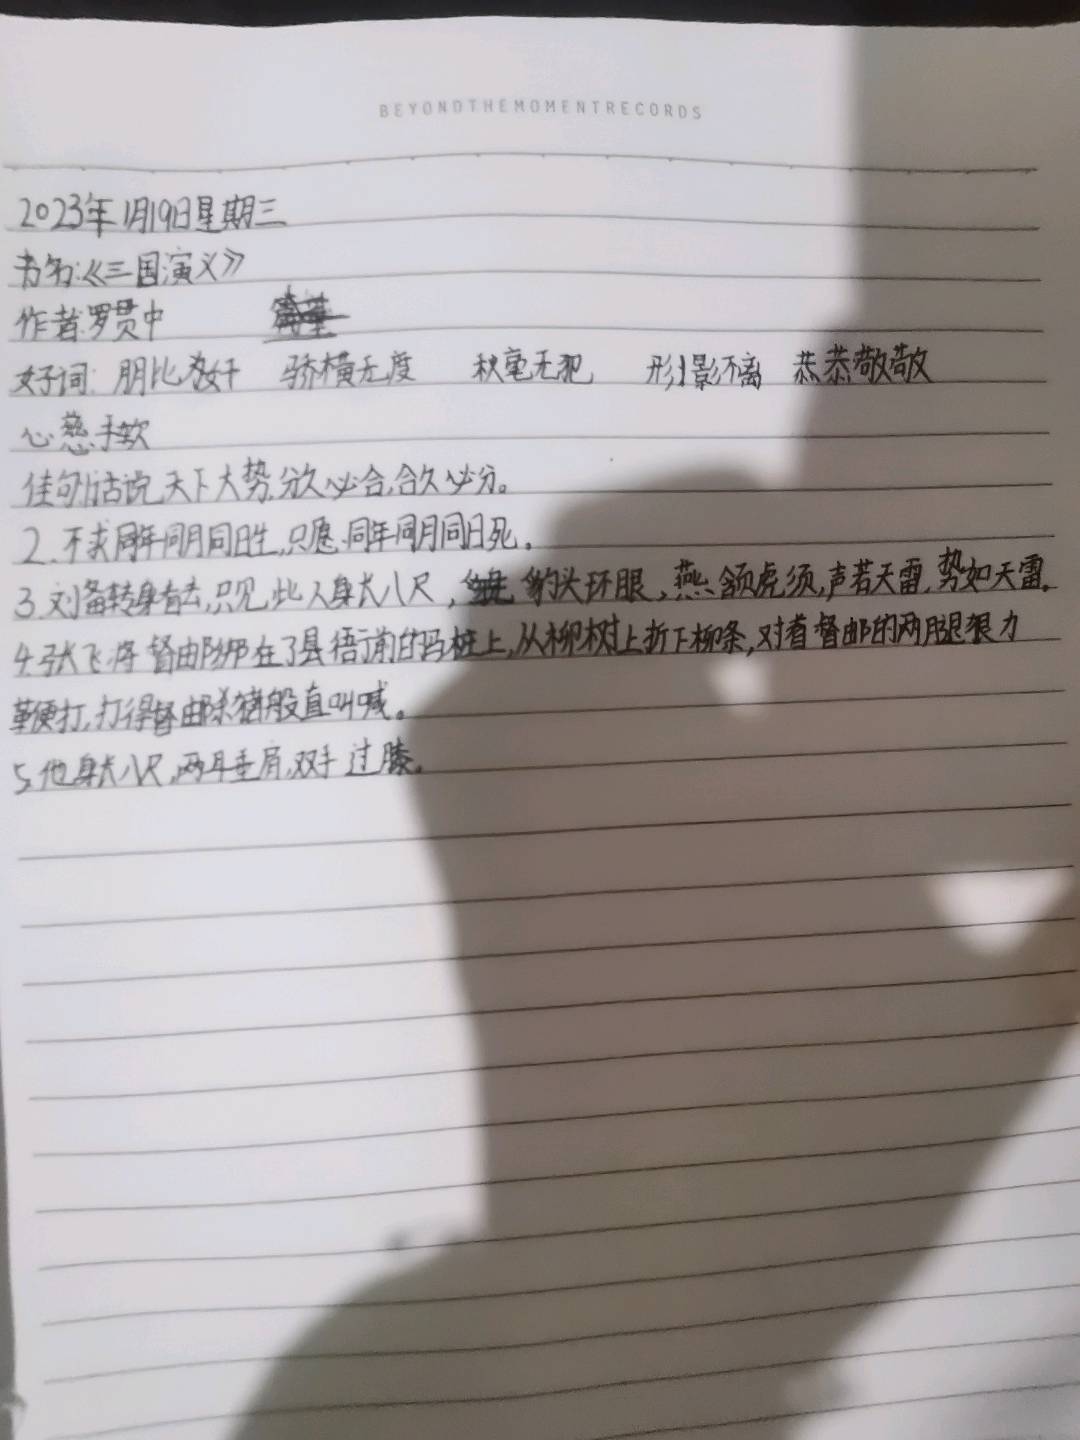 BEYONDTHEMOMENTRECORDS
2023年1月19日星期三
书名:《三国演义》
作者:罗贯中
好词: 朋比为奸 骄横无度 秋毫无犯 形影不离 恭恭敬敬
心慈手软
佳句1话说,天下大势,分久必合,合久必分。
2.不求同年同月同日生,只愿同年同月同日死。
3.刘备转身看去,只见此人身长八尺,豹头环眼,燕颔虎须,声若天雷,势如天雷。
4.张飞将督由阝绑在了县梧前的马桩上,从柳树上折下柳条,对着督邮的两腿狠力
鞭打,打得督邮杀猪般直叫喊。
5.他身长八尺,两耳垂肩,双手过膝。